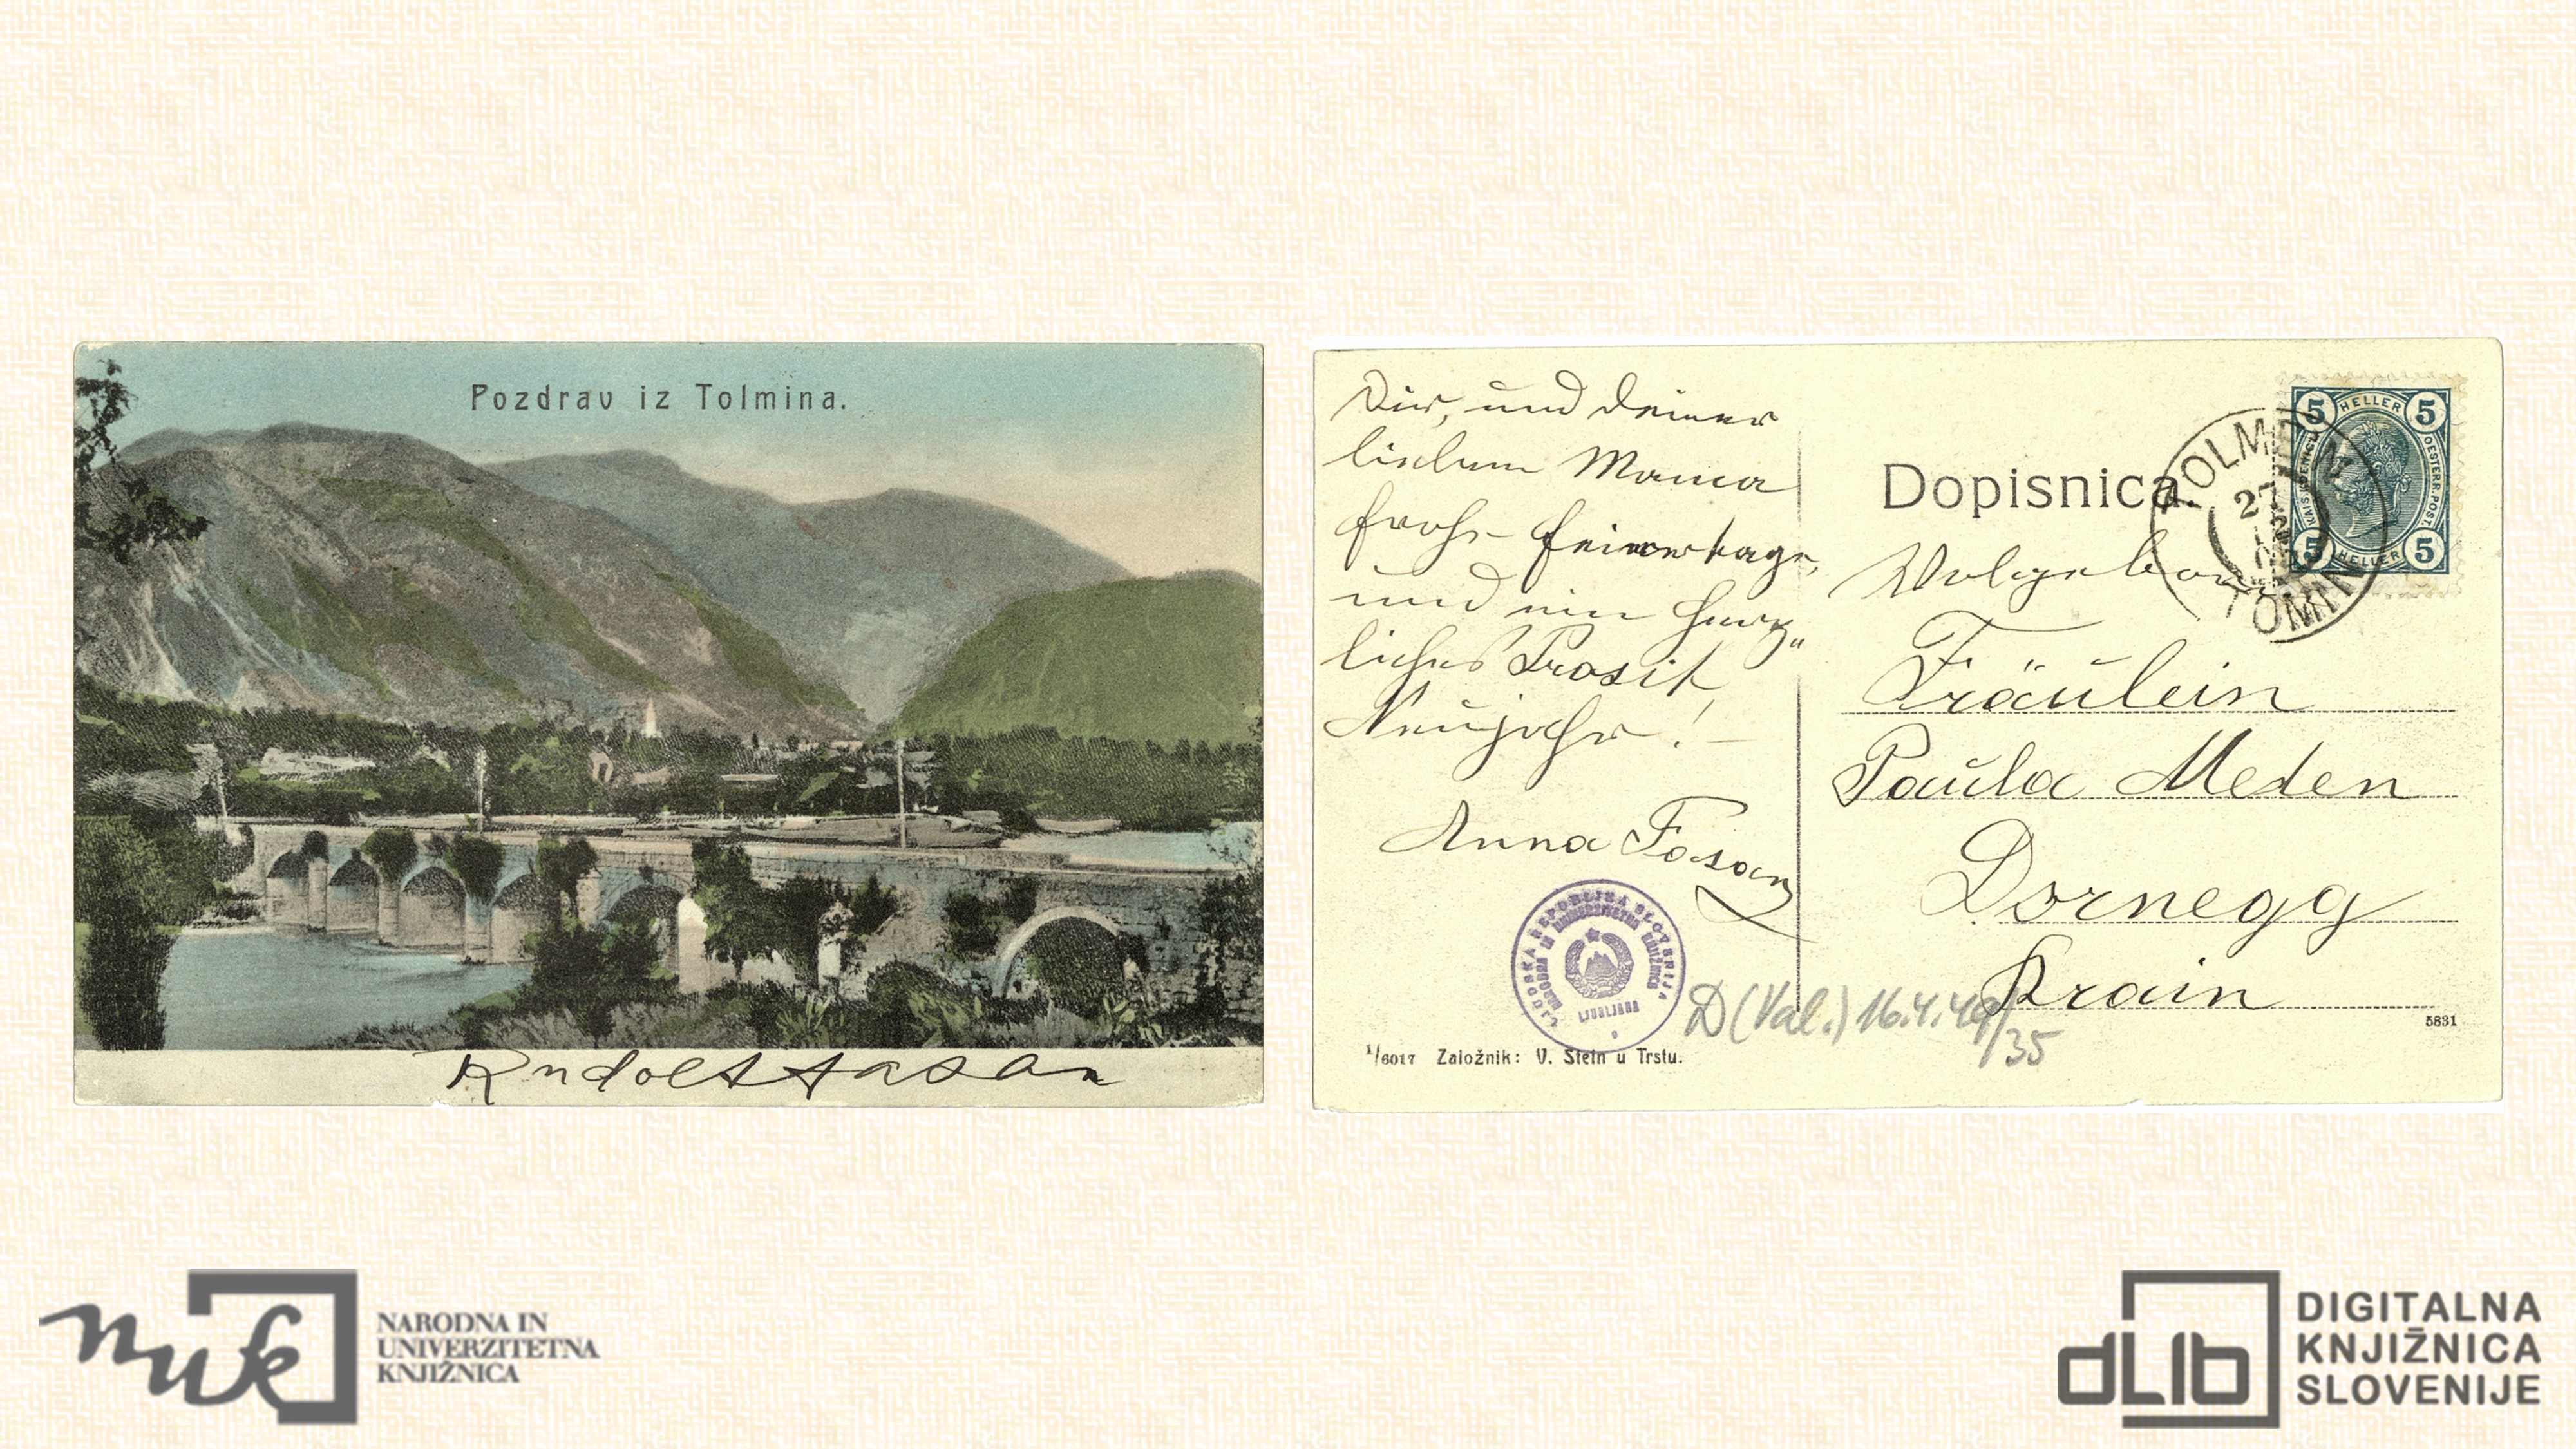 Pozdrav iz Tolmina.
Rudolf Fasan
Dir, und deiner
lieben Mama
frohe Feiertage,
und ein herz„
liches Prosit
Neujahr! –
Anna Fasan
LJUDSKA REPUBLIKA SLOVENIJA
NARODNA IN UNIVERZITETNA KNJIŽNICA
LJUBLJANA
D (Val.) 16.4.49/35
1/6017 Založnik: V. Stein u Trstu.
Dopisnica.
TOLMEIN
27
TOMIN
5 HELLER 5
KAIS. KÖNIGL. OESTERR. POST.
5 HELLER 5
Wolgeboren
Fräulein
Paula Meden
Dornegg
Krain
5831
nuk
NARODNA IN
UNIVERZITETNA
KNJIŽNICA
dLib
DIGITALNA
KNJIŽNICA
SLOVENIJE